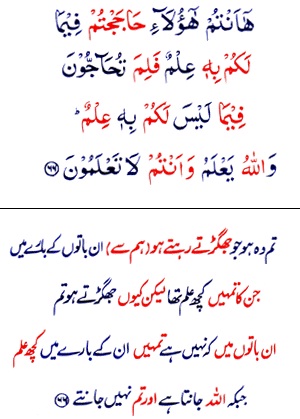 هَاَنْتُمْ هٰٓؤُلَآءِ حَاجَجْتُمْ فِیْمَا
لَكُمْ بِهٖ عِلْمٌ فَلِمَ تُحَآجُّوْنَ
فِیْمَا لَیْسَ لَكُمْ بِهٖ عِلْمٌ ؕ
وَاللّٰهُ یَعْلَمُ وَاَنْتُمْ لَا تَعْلَمُوْنَ ﴿۶۶﴾
تم وہ ہو جو جھگڑتے رہتے ہو (ہم سے) ان باتوں کے بارے میں
جن کا تمہیں کچھ علم تھا لیکن کیوں جھگڑتے ہو تم
ان باتوں میں کہ نہیں ہے تمہیں ان کے بارے میں کچھ علم
جبکہ اللہ جانتا ہے اور تم نہیں جانتے ﴿۶۶﴾